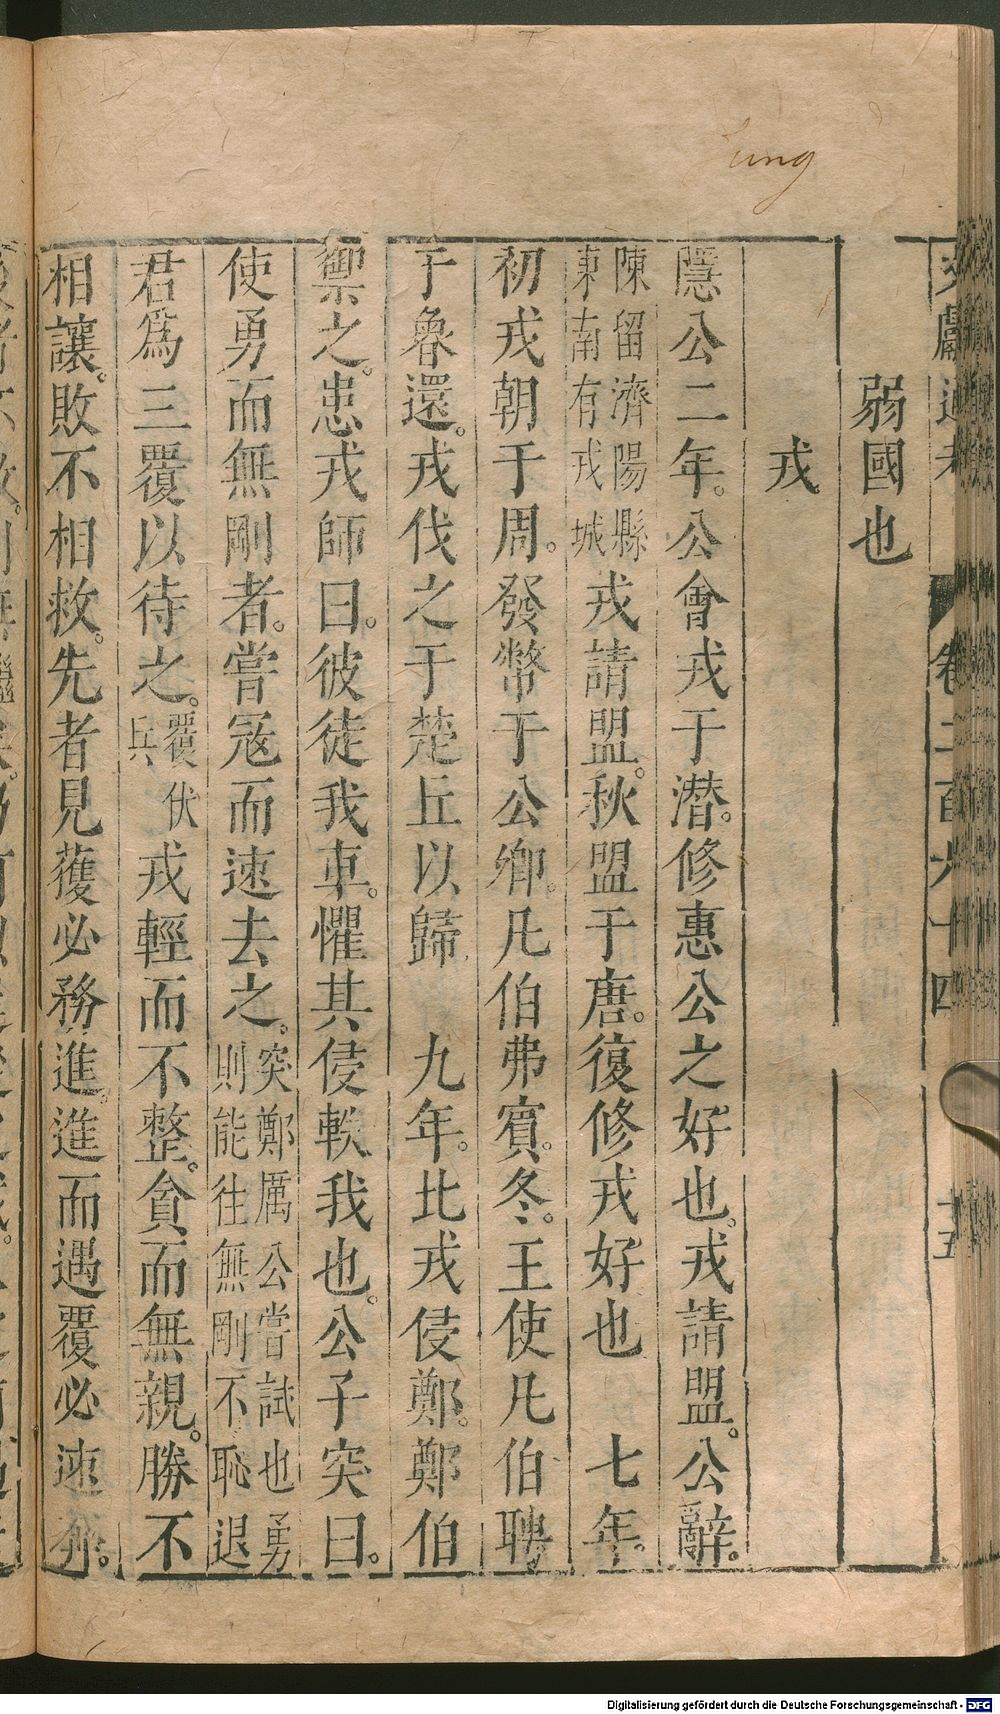 Jung
文獻通考 卷二百六十四 十五
弱國也
戎
隱公二年。公會戎于潛。修惠公之好也。戎請盟。公辭。
陳留濟陽縣東南有戎城戎請盟。秋盟于唐。復修戎好也 七年。
初戎朝于周。發幣于公卿。凡伯弗賓。冬。王使凡伯聘
于魯還。戎伐之于楚丘以歸 九年。北戎侵鄭。鄭伯
禦之。患戎師曰。彼徒我車。懼其侵軼我也。公子突曰。
使勇而無剛者。嘗寇而速去之。突鄭厲公嘗試也勇則能往無剛不恥退
君爲三覆以待之。覆伏兵戎輕而不整。貪而無親。勝不
相讓。敗不相救。先者見獲必務進。進而遇覆必速奔。
Digitalisierung gefördert durch die Deutsche Forschungsgemeinschaft - DFG